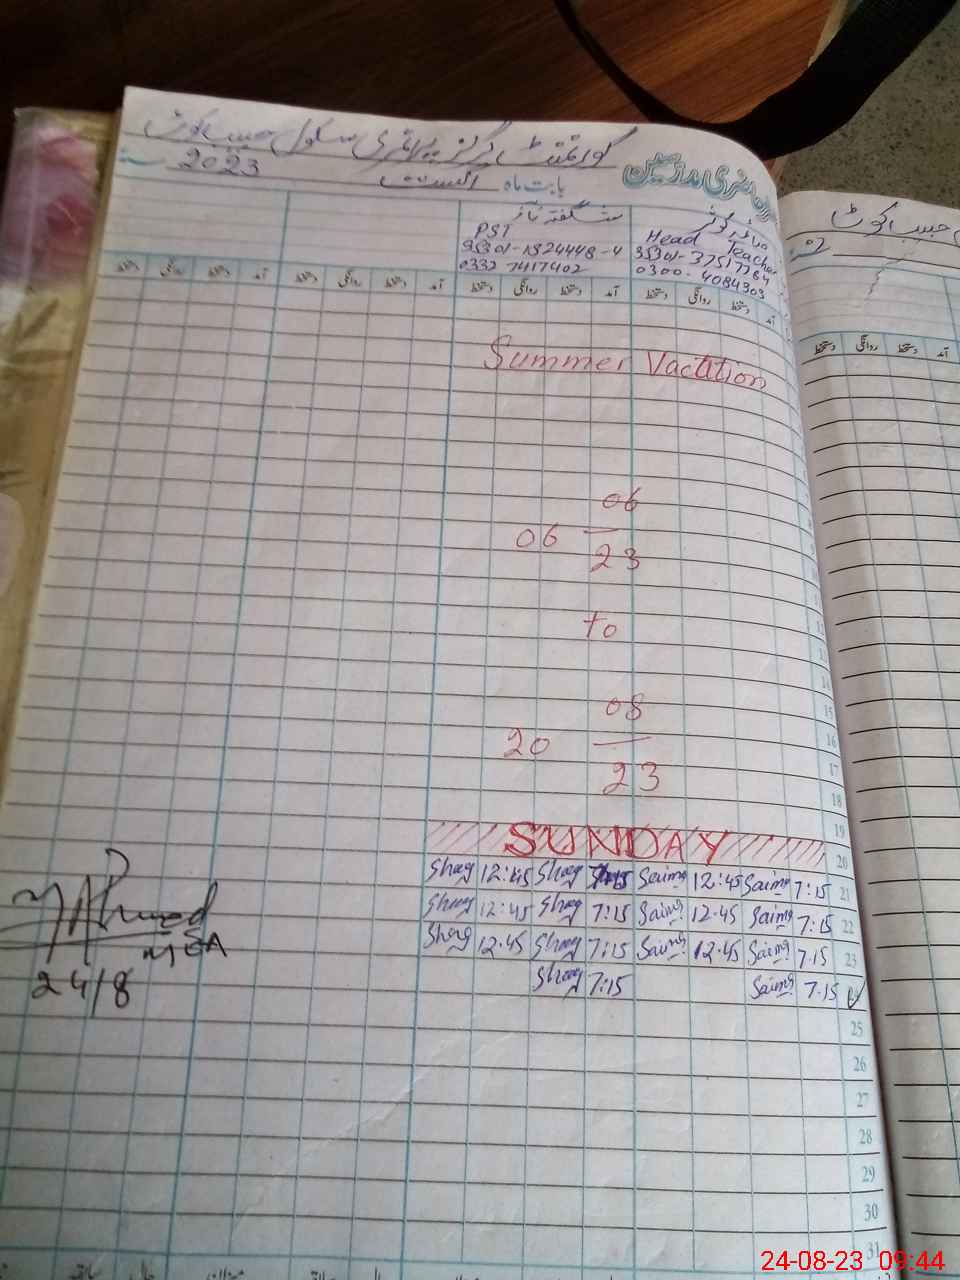 گورنمنٹ گرلز پرائمری سکول حبیب کوٹ
حاضری مدرسین
بابت ماہ اگست 2023
شگفتہ ناز
PST
0332 7417402
Head Teacher
0300-4084303
آمد دستخط روانگی دستخط آمد دستخط روانگی دستخط آمد دستخط روانگی دستخط آمد دستخط روانگی دستخط
دستخط روانگی دستخط آمد
Summer Vactition
06
06
23
to
08
20
23
19
SUNDAY
20
Shag 12:45 Shag 7:15 Saima 12:45 Saima 7:15 21
Shag 12:45 Shag 7:15 Saima 12.45 Saima 7:15 22
Shag 12.45 Shag 7:15 Saima 12.45 Saima 7.15 23
Shag 7:15 Saima 7.15
Ahmed
MEA
24/8
14
15
16
17
18
25
26
27
28
29
30
31
24-08-23 09:44